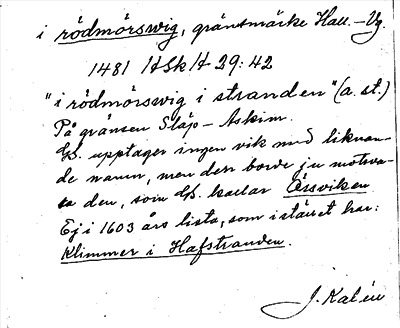 i rödmörswig, gränsmärke Hall.–Vg.
1481 HSkH 29:42
"i rödmörswig i stranden" (a. st.)
På gränsen Släp – Askim.
Gs. upptager ingen vik med liknan-
de namn, men den borde ju motsva-
ra den, som Gs. kallar Åssviken
Ej i 1603 års lista, som i stället har:
Klimmer i Hafstranden.
J. Kalén